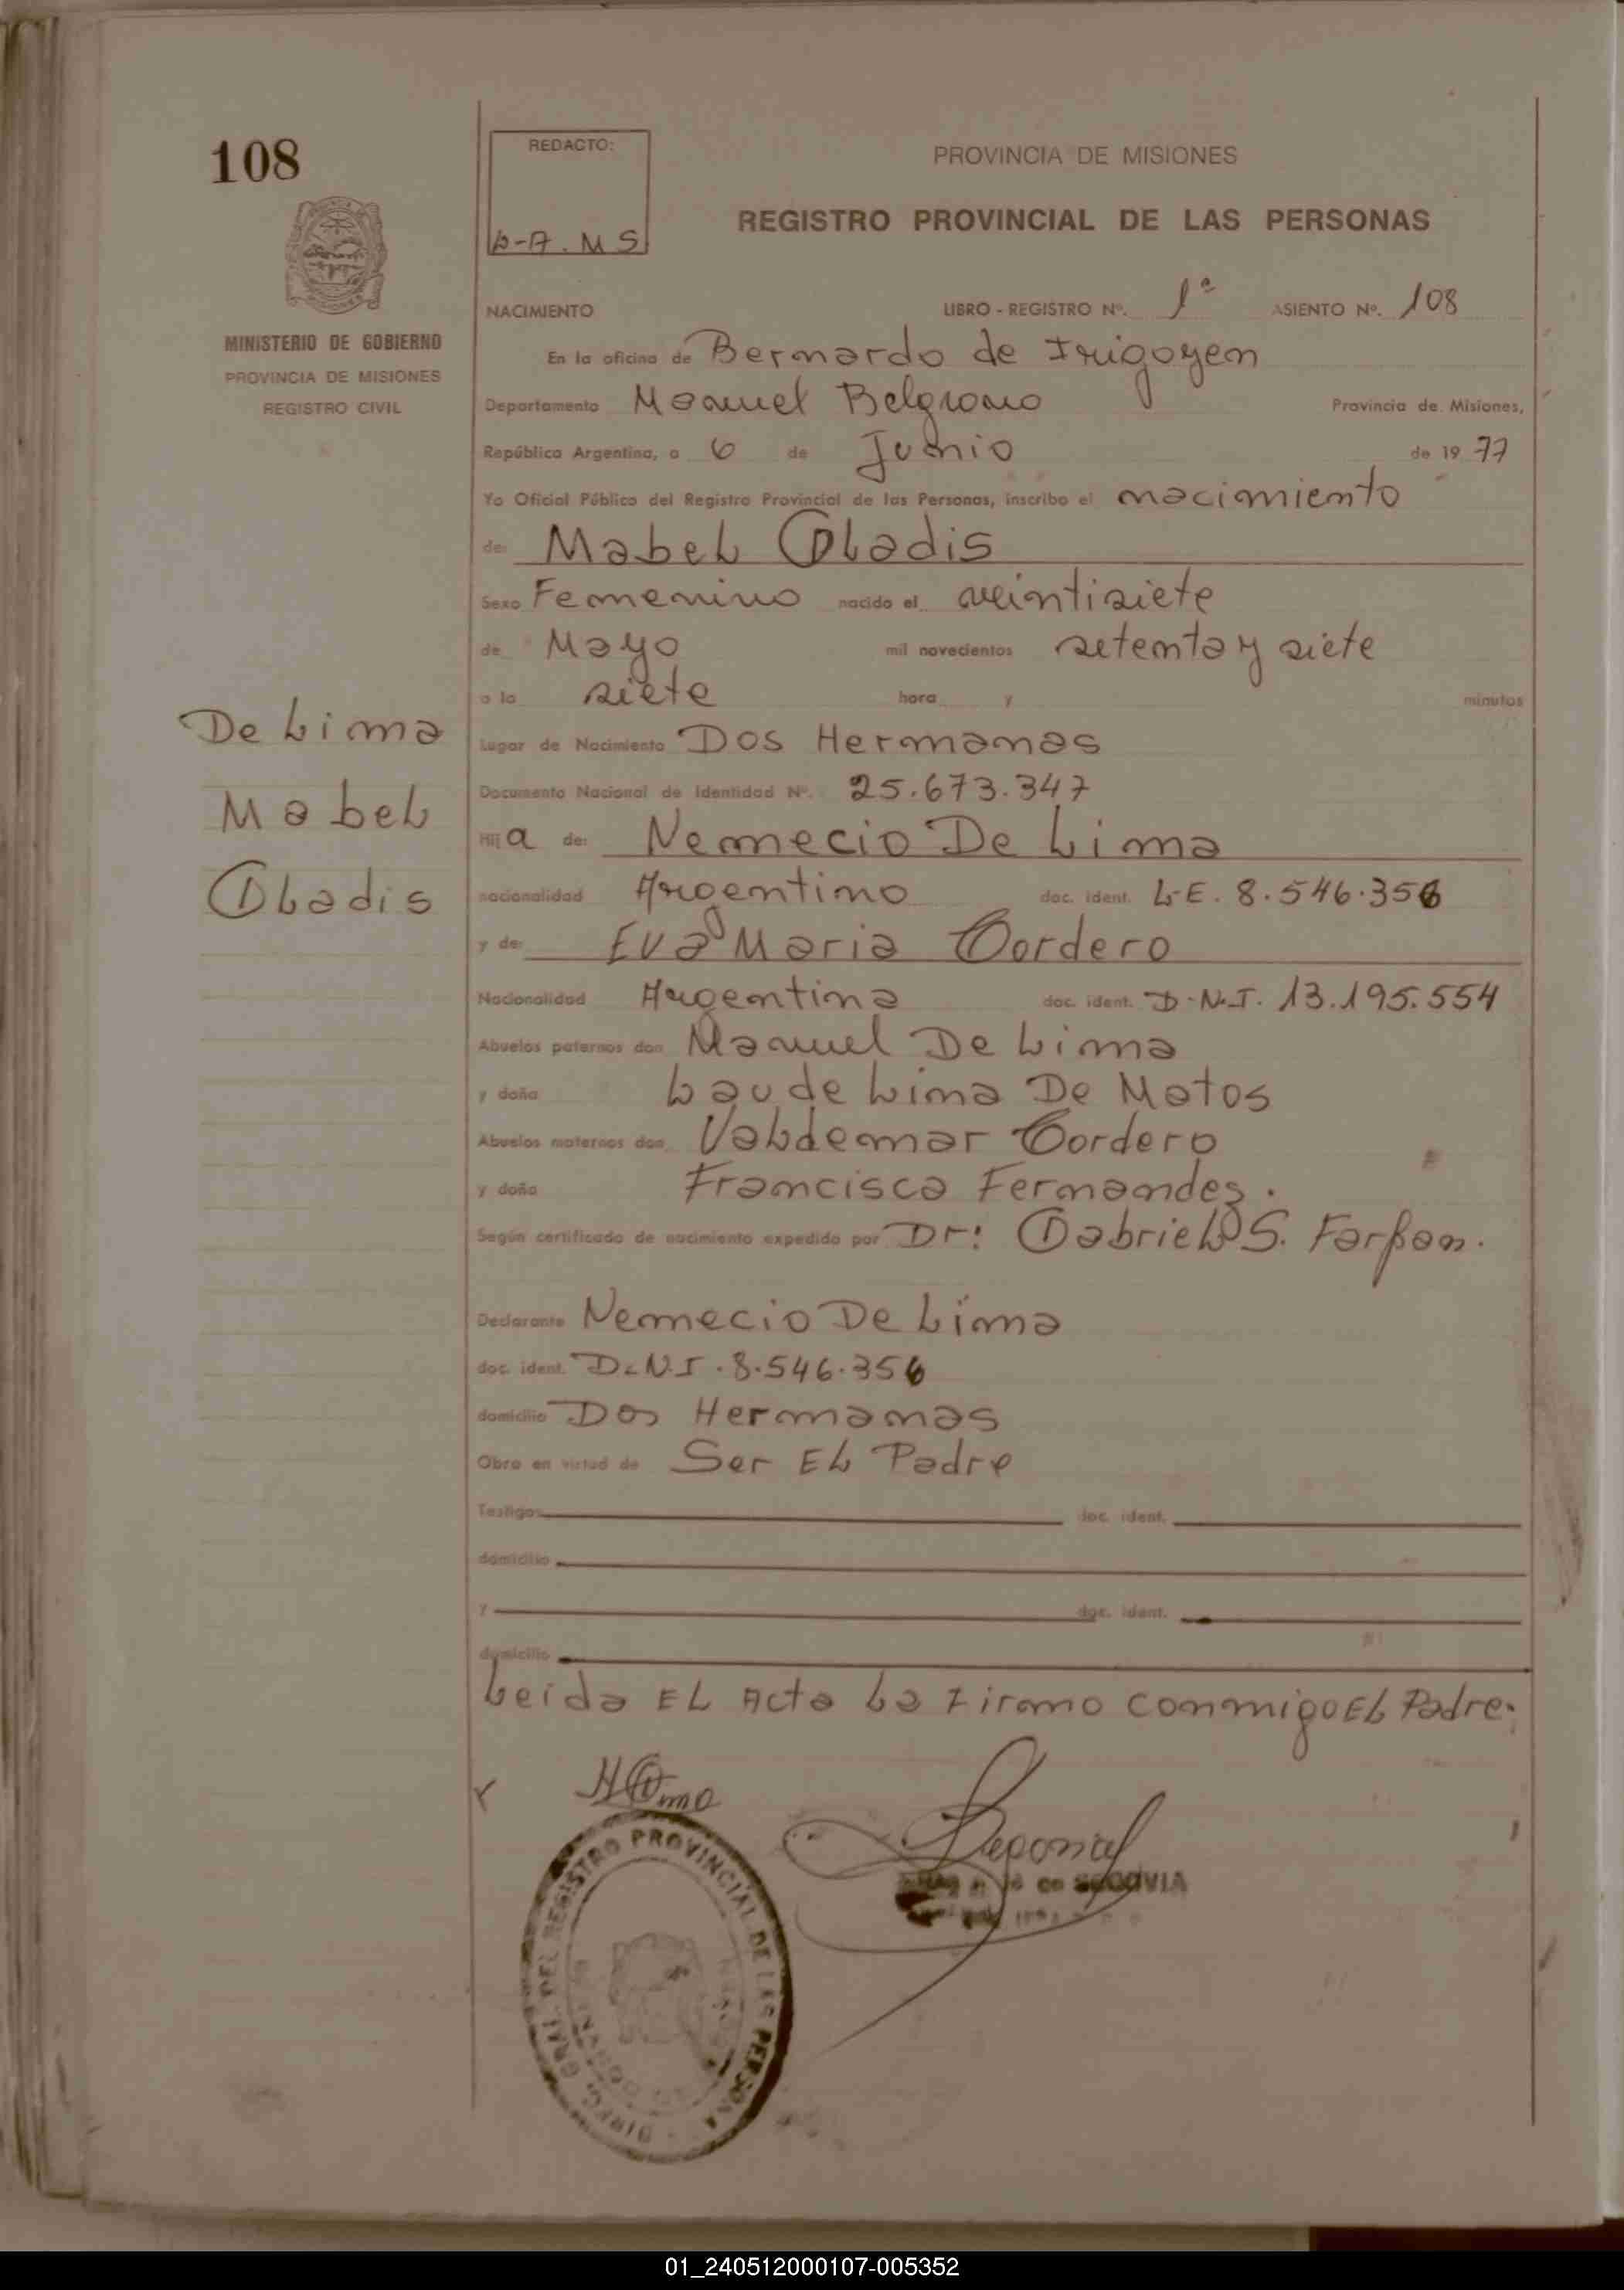 108
REDACTO:
L-A. M S
PROVINCIA DE MISIONES
REGISTRO PROVINCIAL DE LAS PERSONAS
MINISTERIO DE GOBIERNO
PROVINCIA DE MISIONES
REGISTRO CIVIL
NACIMIENTO LIBRO - REGISTRO Nº. 1ª ASIENTO Nº. 108
En la oficina de Bernardo de Irigoyen
Departamento Manuel Belgrano Provincia de Misiones,
República Argentina, a 6 de Junio de 1977
Yo Oficial Público del Registro Provincial de las Personas, inscribo el nacimiento
de: Mabel Gladis
Sexo Femenino nacido el veintisiete
de Mayo mil novecientos setenta y siete
a la siete hora y minutos
De Lima
Mabel
Gladis
Lugar de Nacimiento Dos Hermanas
Documento Nacional de Identidad Nº. 25.673.347
Hija de: Nemecio De Lima
nacionalidad Argentino doc. ident. L-E. 8.546.356
y de: Eva Maria Cordero
Nacionalidad Argentina doc. ident. D-N.I. 13.195.554
Abuelos paternos don Manuel De Lima
y doña Laudelima De Matos
Abuelos maternos don Valdemar Cordero
y doña Francisca Fernandez.
Según certificado de nacimiento expedido por Dr: Gabriel S. Farfan.
Declarante Nemecio De Lima
doc. ident. D-N.I. 8.546.356
domicilio Dos Hermanas
Obra en virtud de Ser El Padre
Testigos doc. ident.
domicilio
y doc. ident.
domicilio
Leida EL Acta La Firmo conmigo EL Padre.
SEGOVIA
DIREC. GRAL. DEL REGISTRO PROVINCIAL DE LAS PERSONAS
01_240512000107-005352